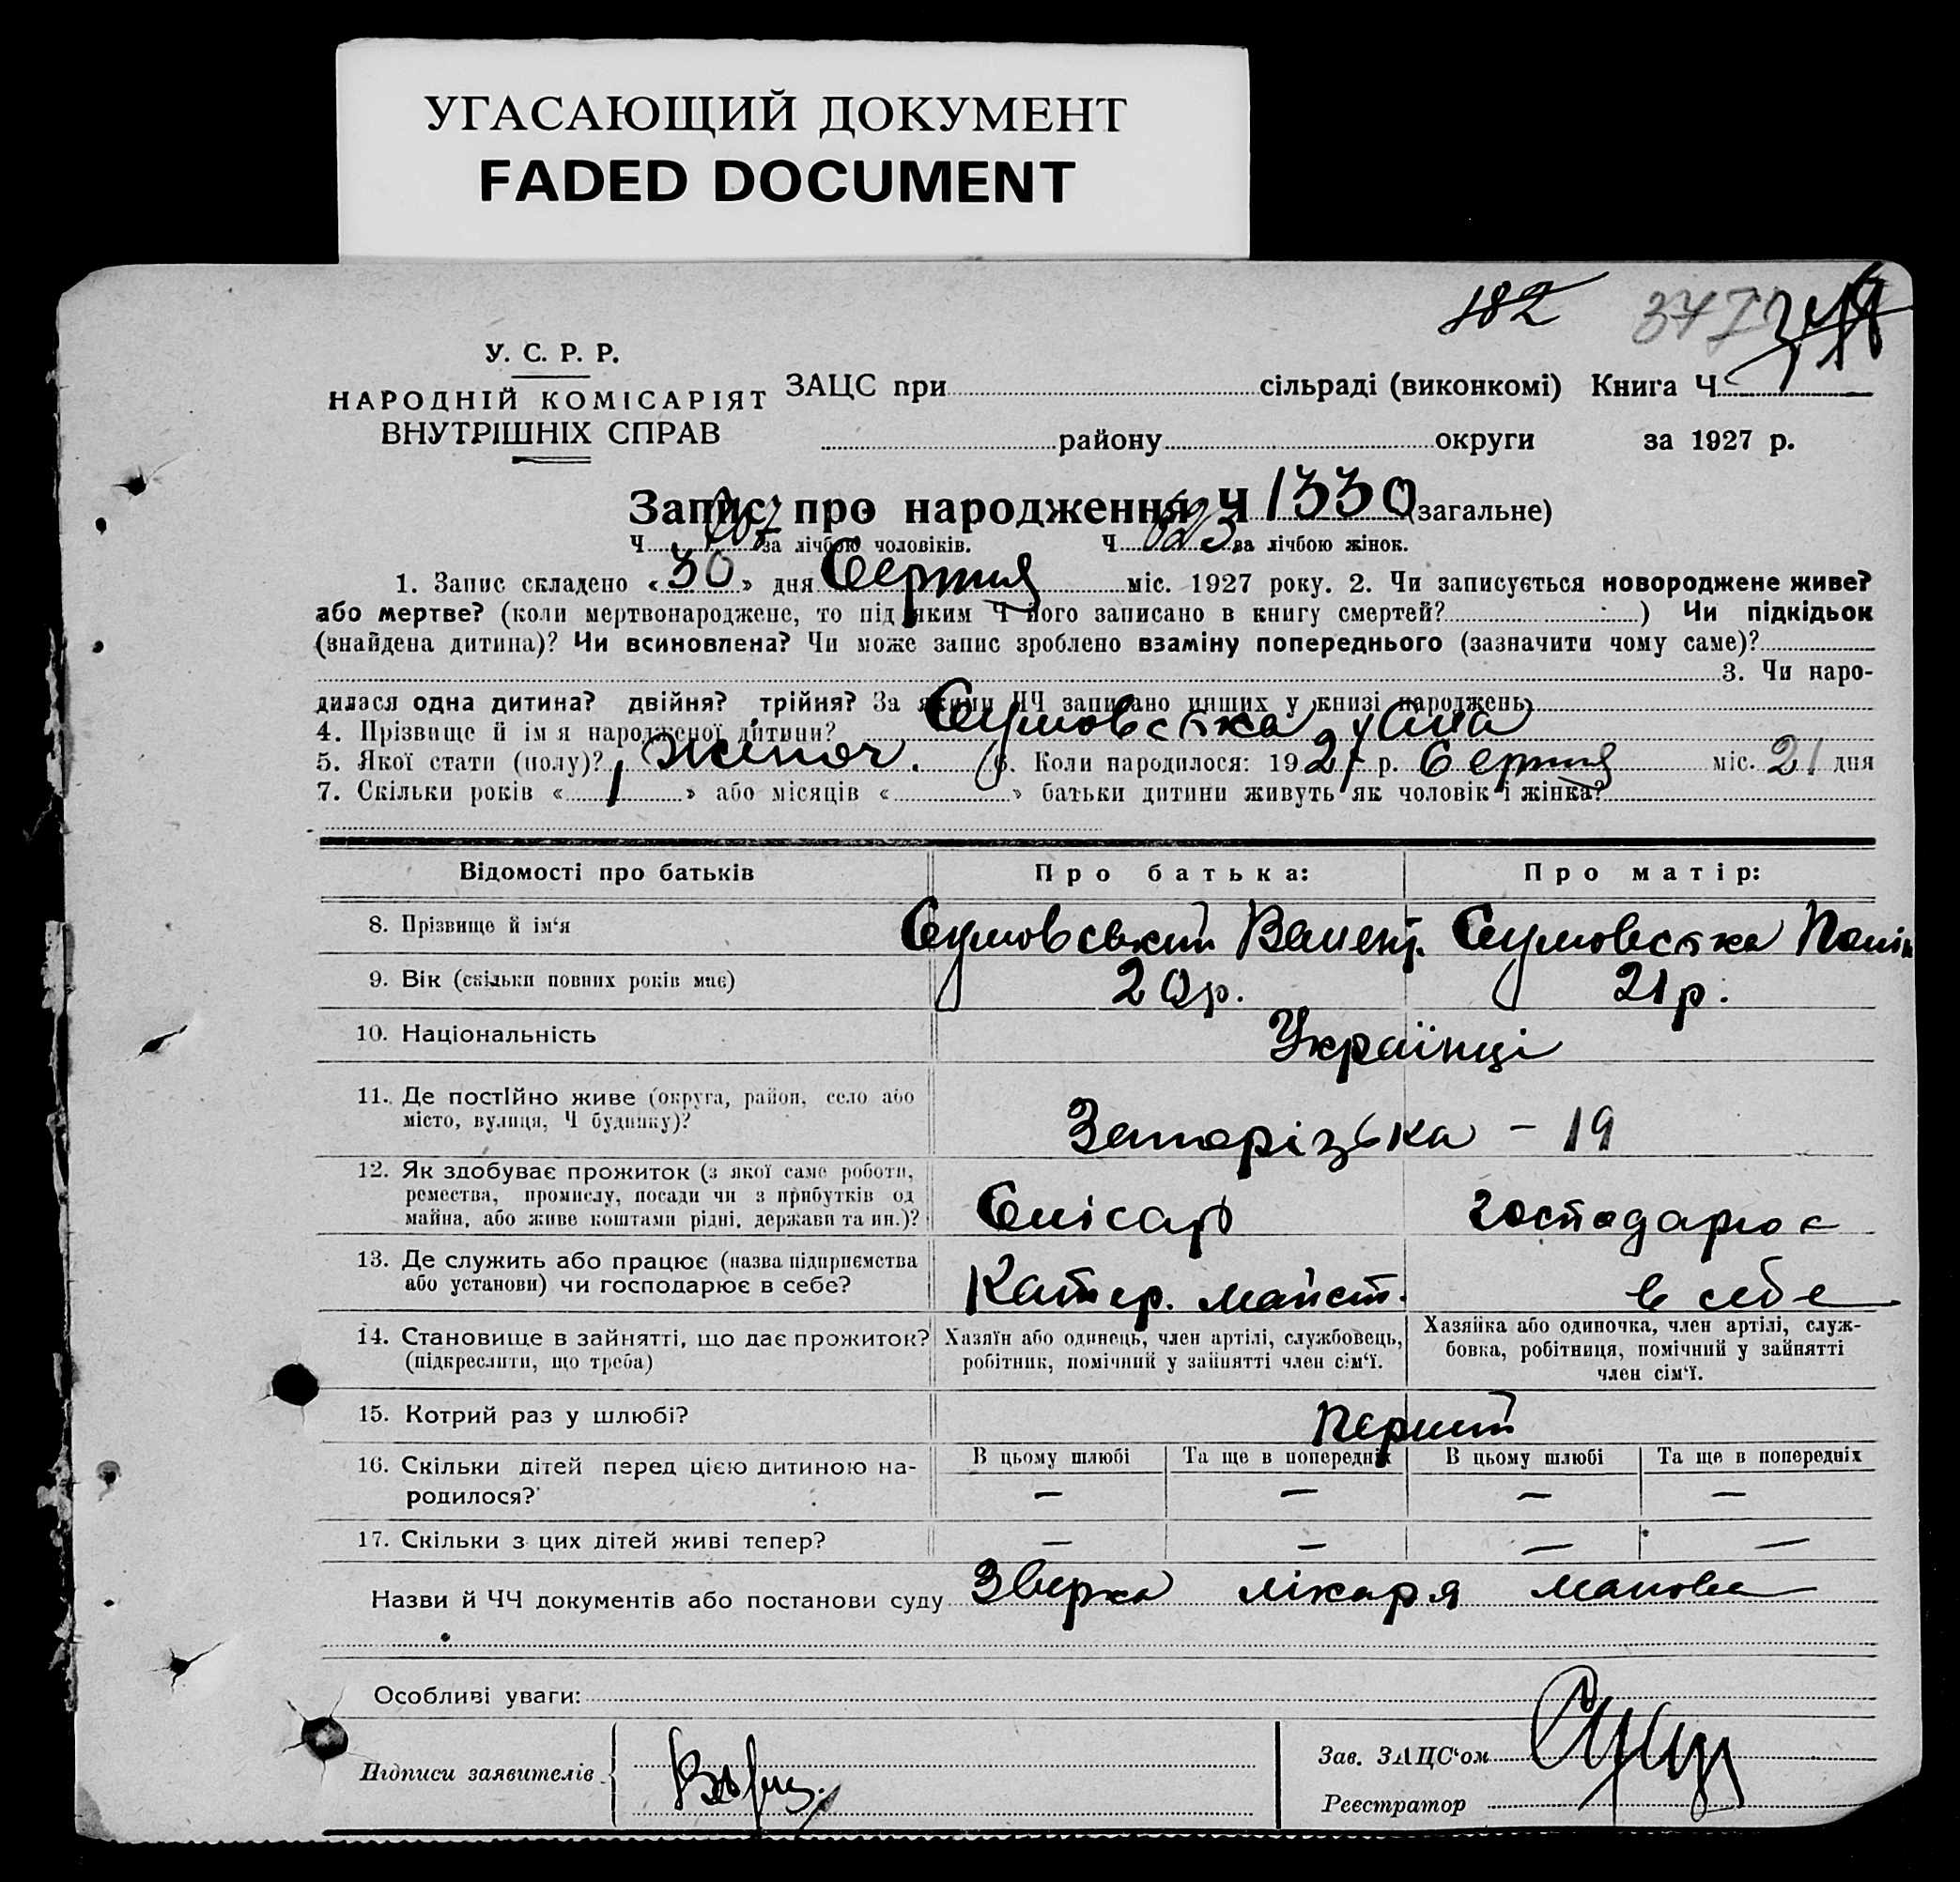 УГАСАЮЩИЙ ДОКУМЕНТ
FADED DOCUMENT
182
У. С. Р. Р.
НАРОДНІЙ КОМІСАРІЯТ
ВНУТРІШНІХ СПРАВ
ЗАЦС при сільраді (виконкомі) Книга Ч
району округи за 1927 р.
Запис про народження Ч 1330 (загальне)
Ч 707 за лічбою чоловіків. Ч 623 за лічбою жінок.
1. Запис складено «30» дня Серпня міс. 1927 року. 2. Чи записується новороджене живе?
або мертве? (коли мертвонароджене, то під яким Ч його записано в книгу смертей? ) Чи підкідьок
(знайдена дитина)? Чи всиновлена? Чи може запис зроблено взаміну попереднього (зазначити чому саме)?
3. Чи наро-
дилася одна дитина? двійня? трійня? За якими ЧЧ записано инших у книзі народжень
4. Прізвище й ім'я народженої дитини? Сумовська
5. Якої стати (полу)? жіноч. 6. Коли народилося: 1927 р. Серпня міс. 21 дня
7. Скільки років «1» або місяців « » батьки дитини живуть як чоловік і жінка?
Відомості про батьків Про батька: Про матір:
8. Прізвище й ім'я Сумовський Валент. Сумовська
9. Вік (скільки повних років має) 20р. 21р.
10. Національність Українці
11. Де постійно живе (округа, район, село або
місто, вулиця, Ч будинку)? Запорізька - 19
12. Як здобуває прожиток (з якої саме роботи,
ремества, промислу, посади чи з прибутків од
майна, або живе коштами рідні, держави та ин.)? Слісар господарює
13. Де служить або працює (назва підприємства
або установи) чи господарює в себе? Катер. майст. в себе
14. Становище в зайнятті, що дає прожиток?
(підкреслити, що треба)
Хазяїн або одинець, член артілі, службовець,
робітник, помічний у зайнятті член сім'ї.
Хазяйка або одиночка, член артілі, служ-
бовка, робітниця, помічний у зайнятті
член сім'ї.
15. Котрий раз у шлюбі? Перший
16. Скільки дітей перед цією дитиною на-
родилося?
В цьому шлюбі Та ще в попередніх В цьому шлюбі Та ще в попередніх
— — — —
17. Скільки з цих дітей живі тепер? — — — —
Назви й ЧЧ документів або постанови суду лікаря
Особливі уваги:
Підписи заявителів
Зав. ЗАЦС'ом
Реєстратор